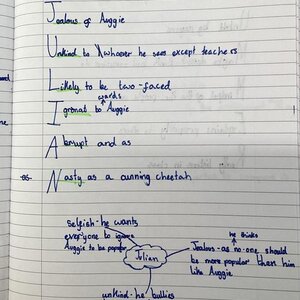 Jealous of Auggie
Unkind to whomever he sees except teachers
Likely to be two-faced
words
Ignorat to Auggie
Abrupt and as
Nasty as a cunning cheetah
selfish - he wants
everyone to ignore
Auggie to be popular
Julian
he thinks
Jealous - as no-one should
be more popular then him
like Auggie.
unkind - he bullies